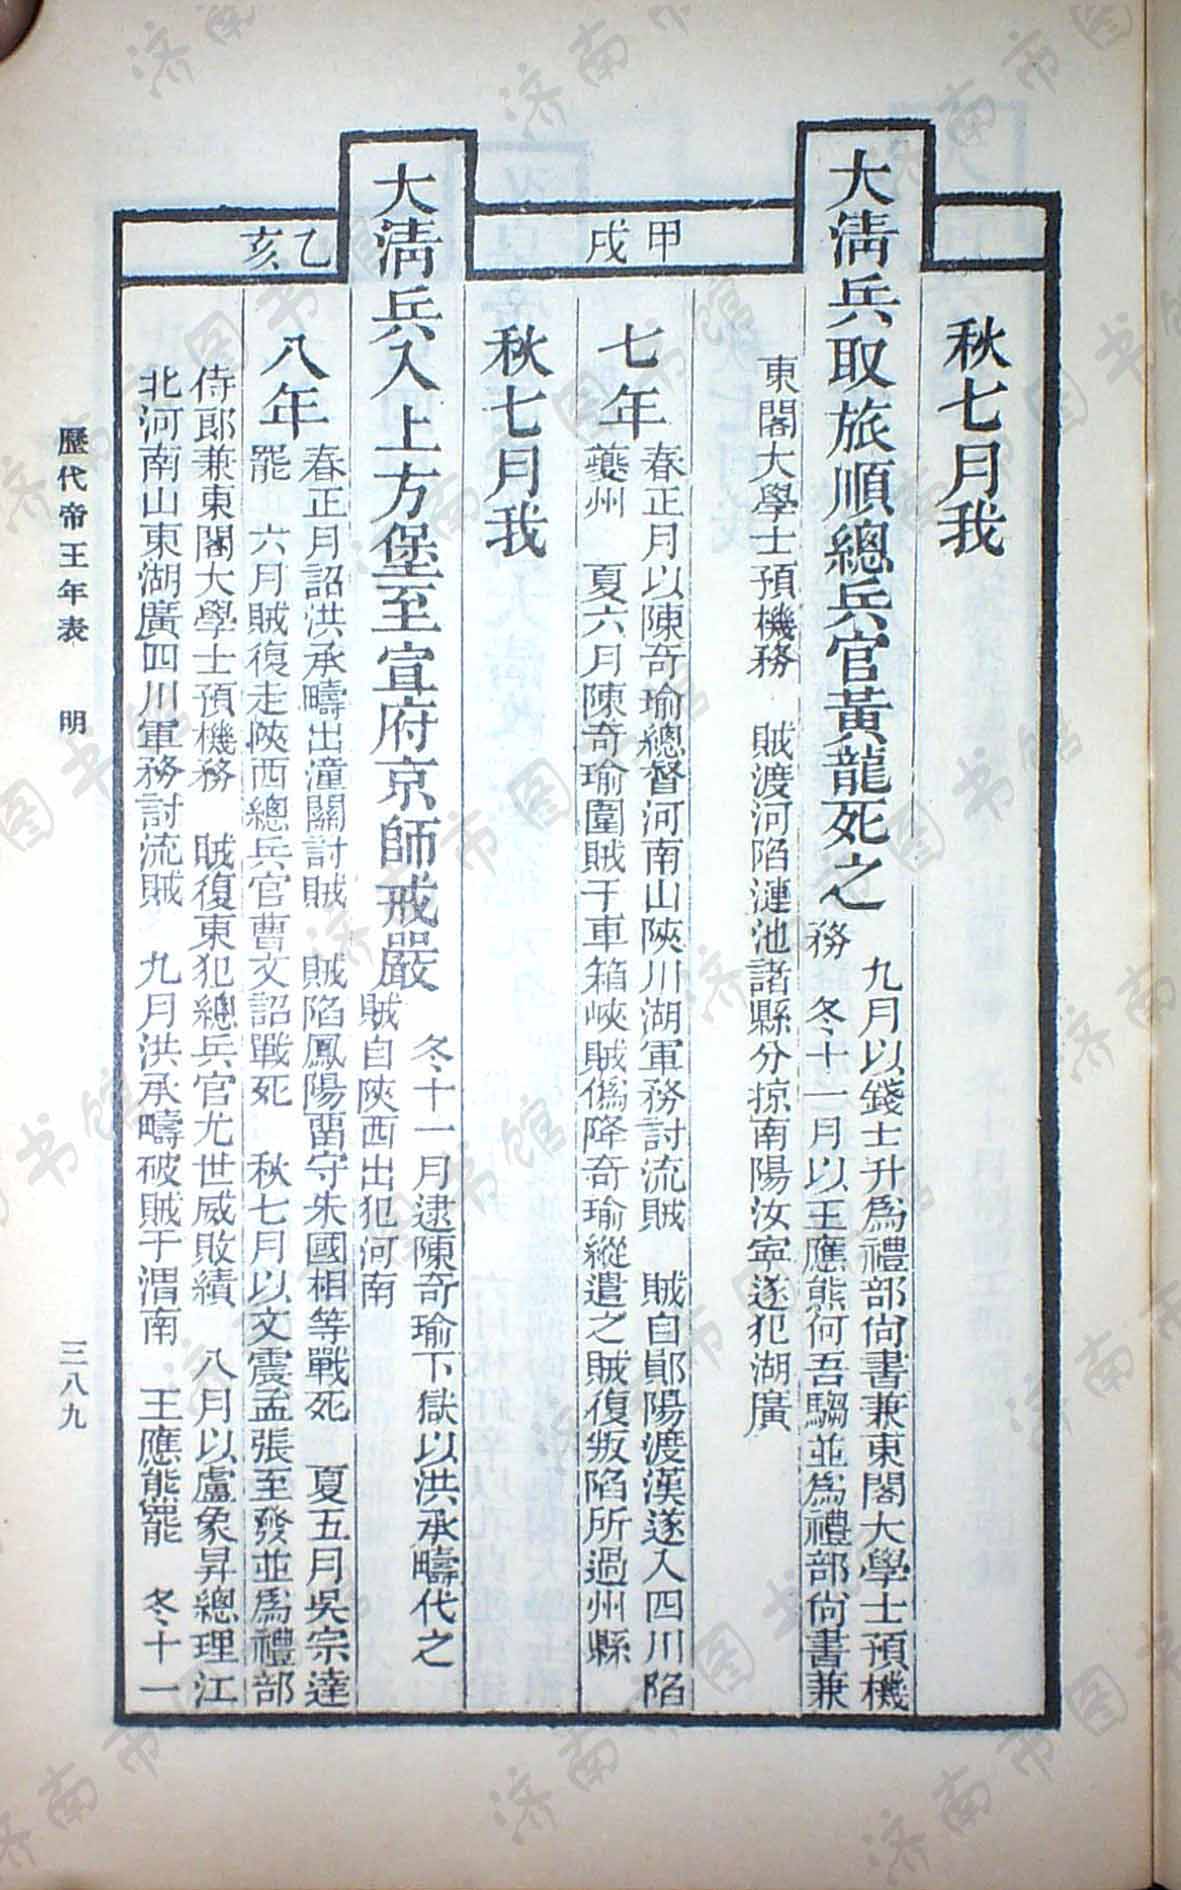 秋七月我
大淸兵取旅順總兵官黃龍死之
九月以錢士升爲禮部尙書兼東閣大學士預機
務　冬十一月以王應熊何吾騶並爲禮部尙書兼
東閣大學士預機務　賊渡河陷澠池諸縣分掠南陽汝寧遂犯湖廣
甲戌
七年
春正月以陳奇瑜總督河南山陝川湖軍務討流賊　賊自鄖陽渡漢遂入四川陷
夔州　夏六月陳奇瑜圍賊于車箱峽賊僞降奇瑜縱遣之賊復叛陷所過州縣
秋七月我
大淸兵入上方堡至宣府京師戒嚴
冬十一月逮陳奇瑜下獄以洪承疇代之
賊自陝西出犯河南
乙亥
八年
春正月詔洪承疇出潼關討賊　賊陷鳳陽畱守朱國相等戰死　夏五月吳宗達
罷　六月賊復走陝西總兵官曹文詔戰死　秋七月以文震孟張至發並爲禮部
侍郎兼東閣大學士預機務　賊復東犯總兵官尤世威敗績　八月以盧象昇總理江
北河南山東湖廣四川軍務討流賊　九月洪承疇破賊于渭南　王應熊罷　冬十一
歷代帝王年表　明
三八九
济南市图书馆